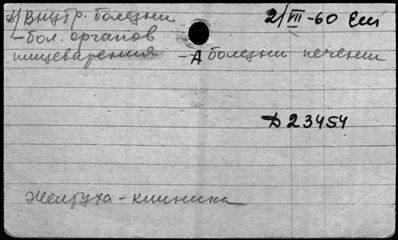 А) Внутр. болезни 2/VII-60
-бол. органов
пищеварения -А болезни печени
D 23454
Желтуха - клиника